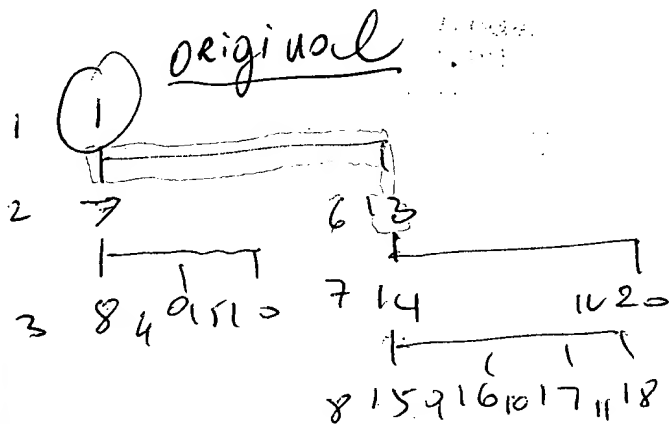 original
1 1
2 7 6 13
3 8 4 9 5 10 7 14 12 20
8 15 9 16 10 17 11 18